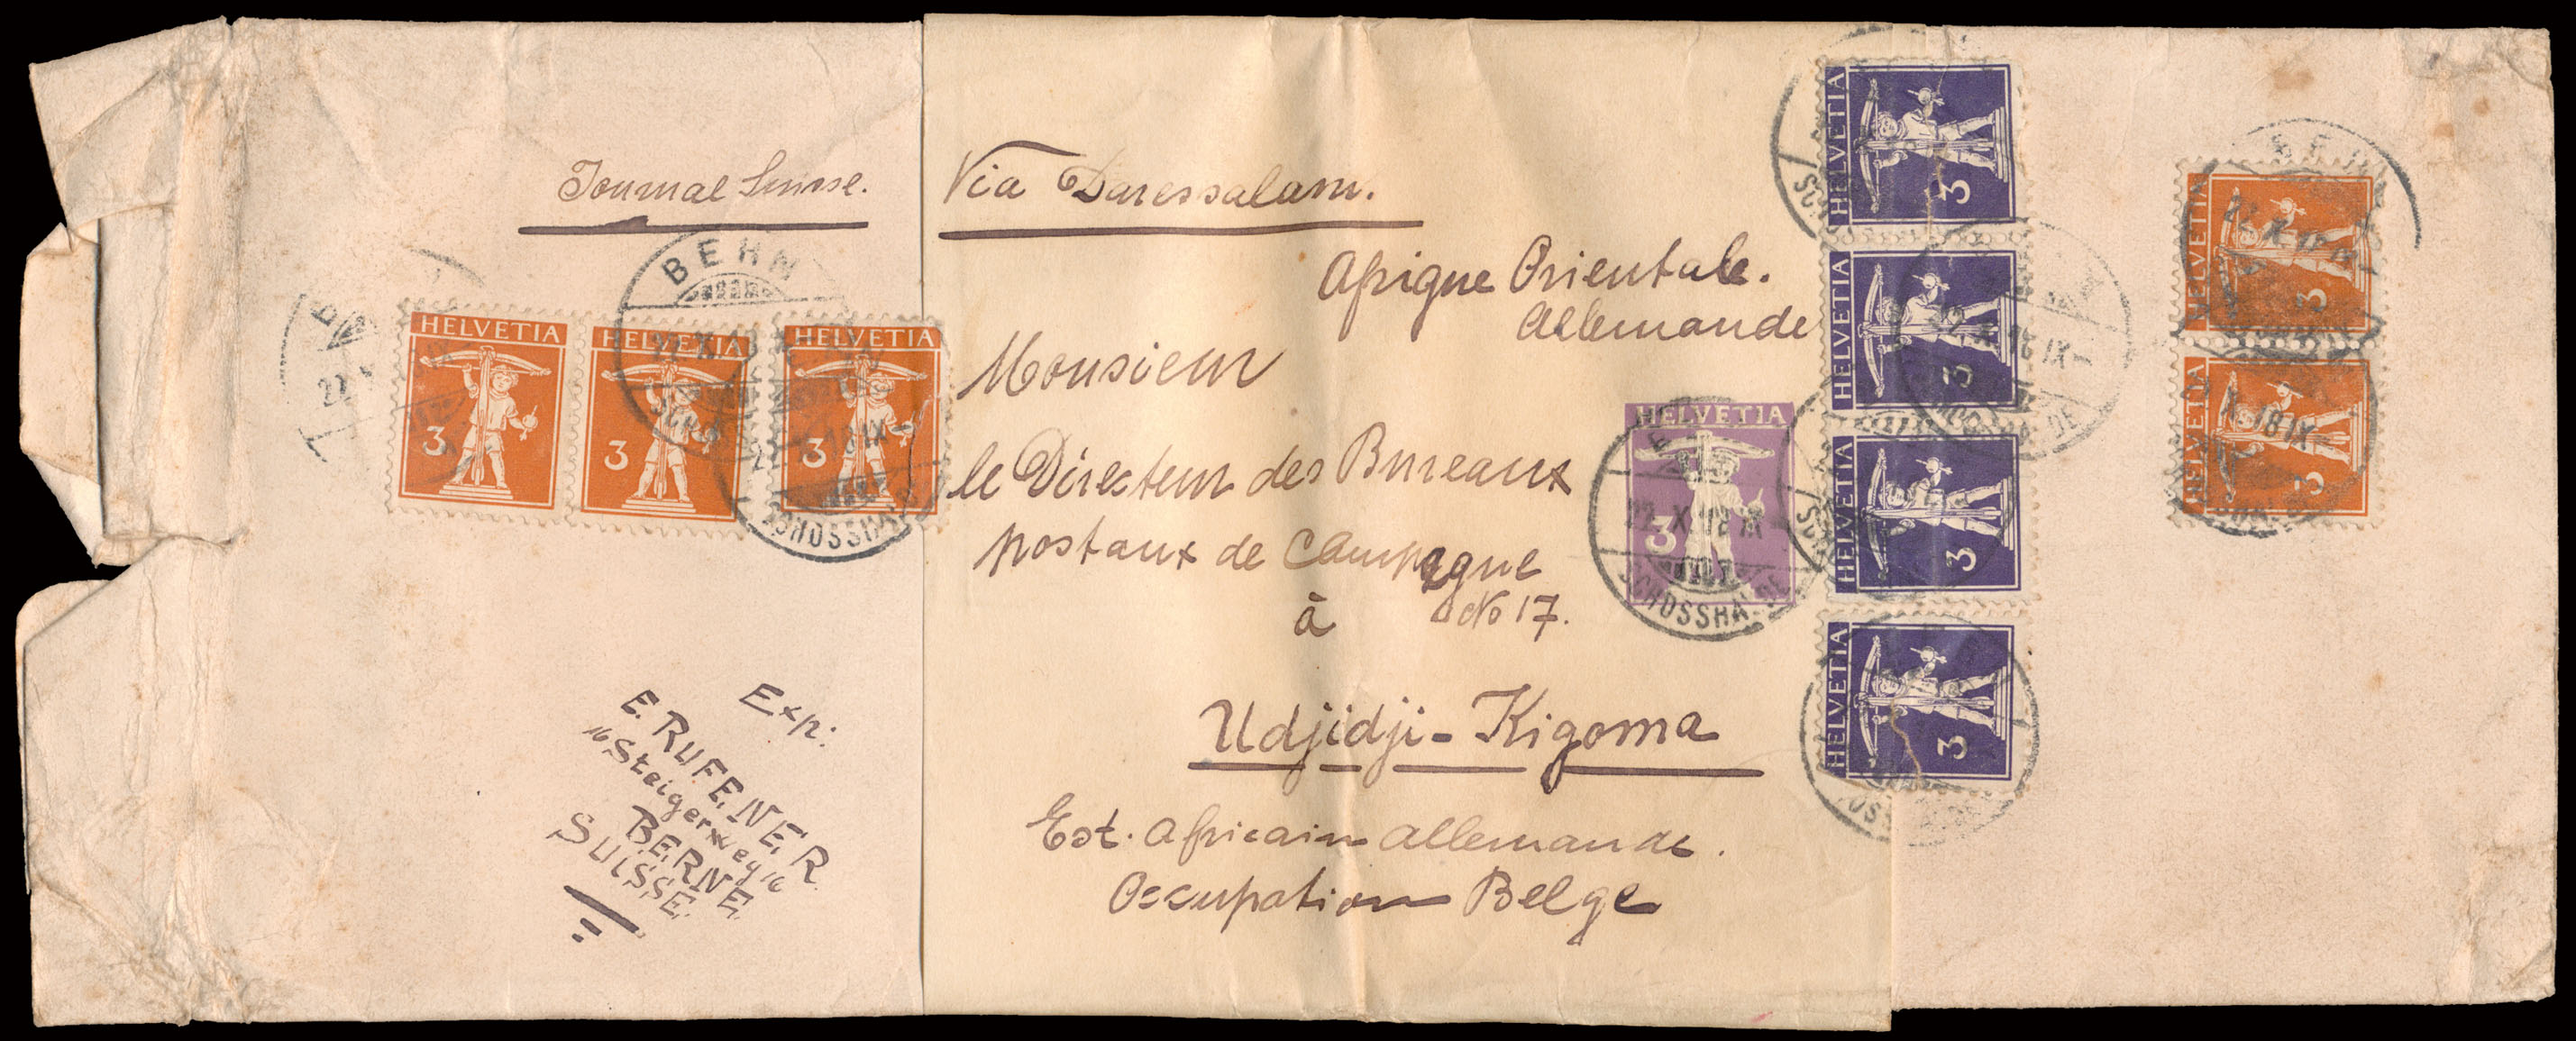 Journal Suisse.
BERN
HELVETIA
3
HELVETIA
3
HELVETIA
3
SCHOSSHALDE
Exp:
E. RUFENER
16 Steigerweg 16
BERNE
SUISSE.
Via Daressalam.
Afrique Orientale.
Allemande
Monsieur
le Directeur des Bureaux
postaux de Campagne
à No 17.
Udjidji-Kigoma
Est. Africain Allemande.
Occupation Belge
HELVETIA
3
22. X. 18 IX
SCHOSSHALDE
HELVETIA
3
HELVETIA
3
HELVETIA
3
HELVETIA
3
HELVETIA
3
HELVETIA
3